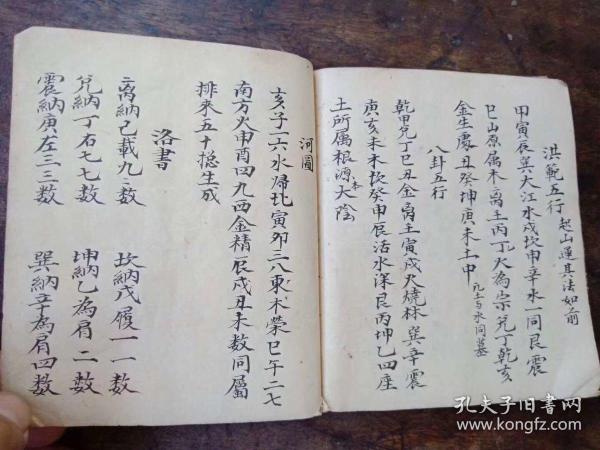 洪範五行 起山運其法如前
甲寅辰巽大江水戌坎申辛水一同艮震
巳山原属木离壬丙丁火為宗兌丁乾亥
金生處丑癸坤庚未土中 凡土与水同墓
八卦五行
乾甲兌丁巳丑金离壬寅戌火燒林巽辛震
庚亥未木坎癸申辰活水深艮丙坤乙四座
土所属根源本大陰
河圖
亥子一六水歸北寅卯三八東木榮巳午二七
南方火申酉四九西金精辰戌丑未数同屬
排來五十揔生成
洛書
离納己載九数 坎納戊履一一数
兌納丁右七七数 坤納乙為肩二数
震納庚左三三数 巽納辛為肩四数
孔夫子旧書网
www.kongfz.com